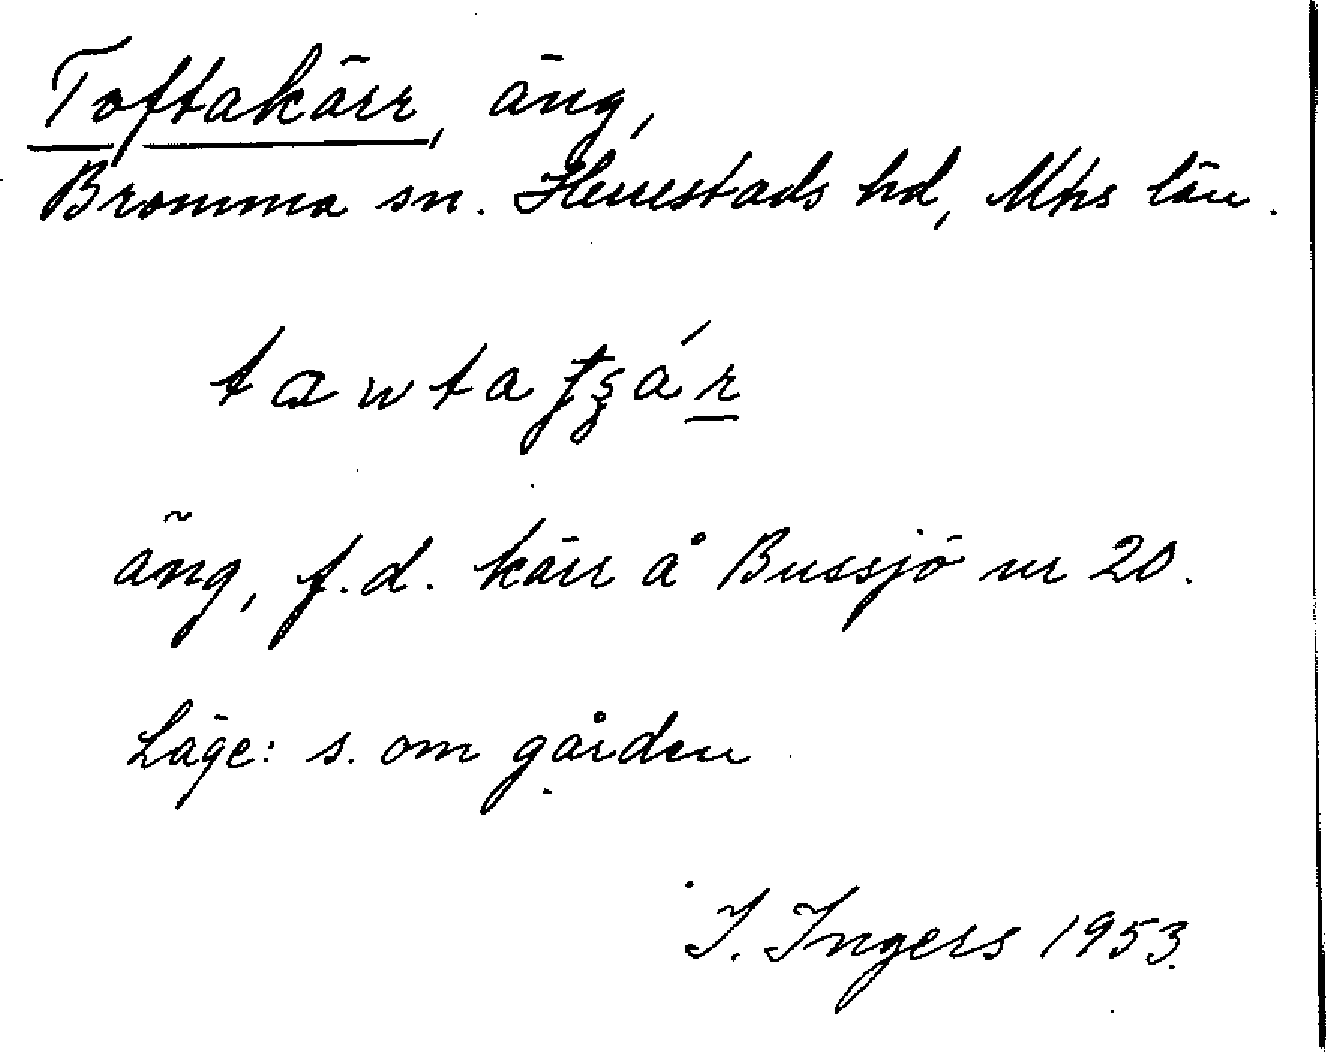 Toftakärr, äng,
Bromma sn. Herrestads hd, Mhs län.
tawta ʈʂár
äng, f.d. kärr å Bussjö nr 20.
Läge: s. om gården
I. Ingers 1953.